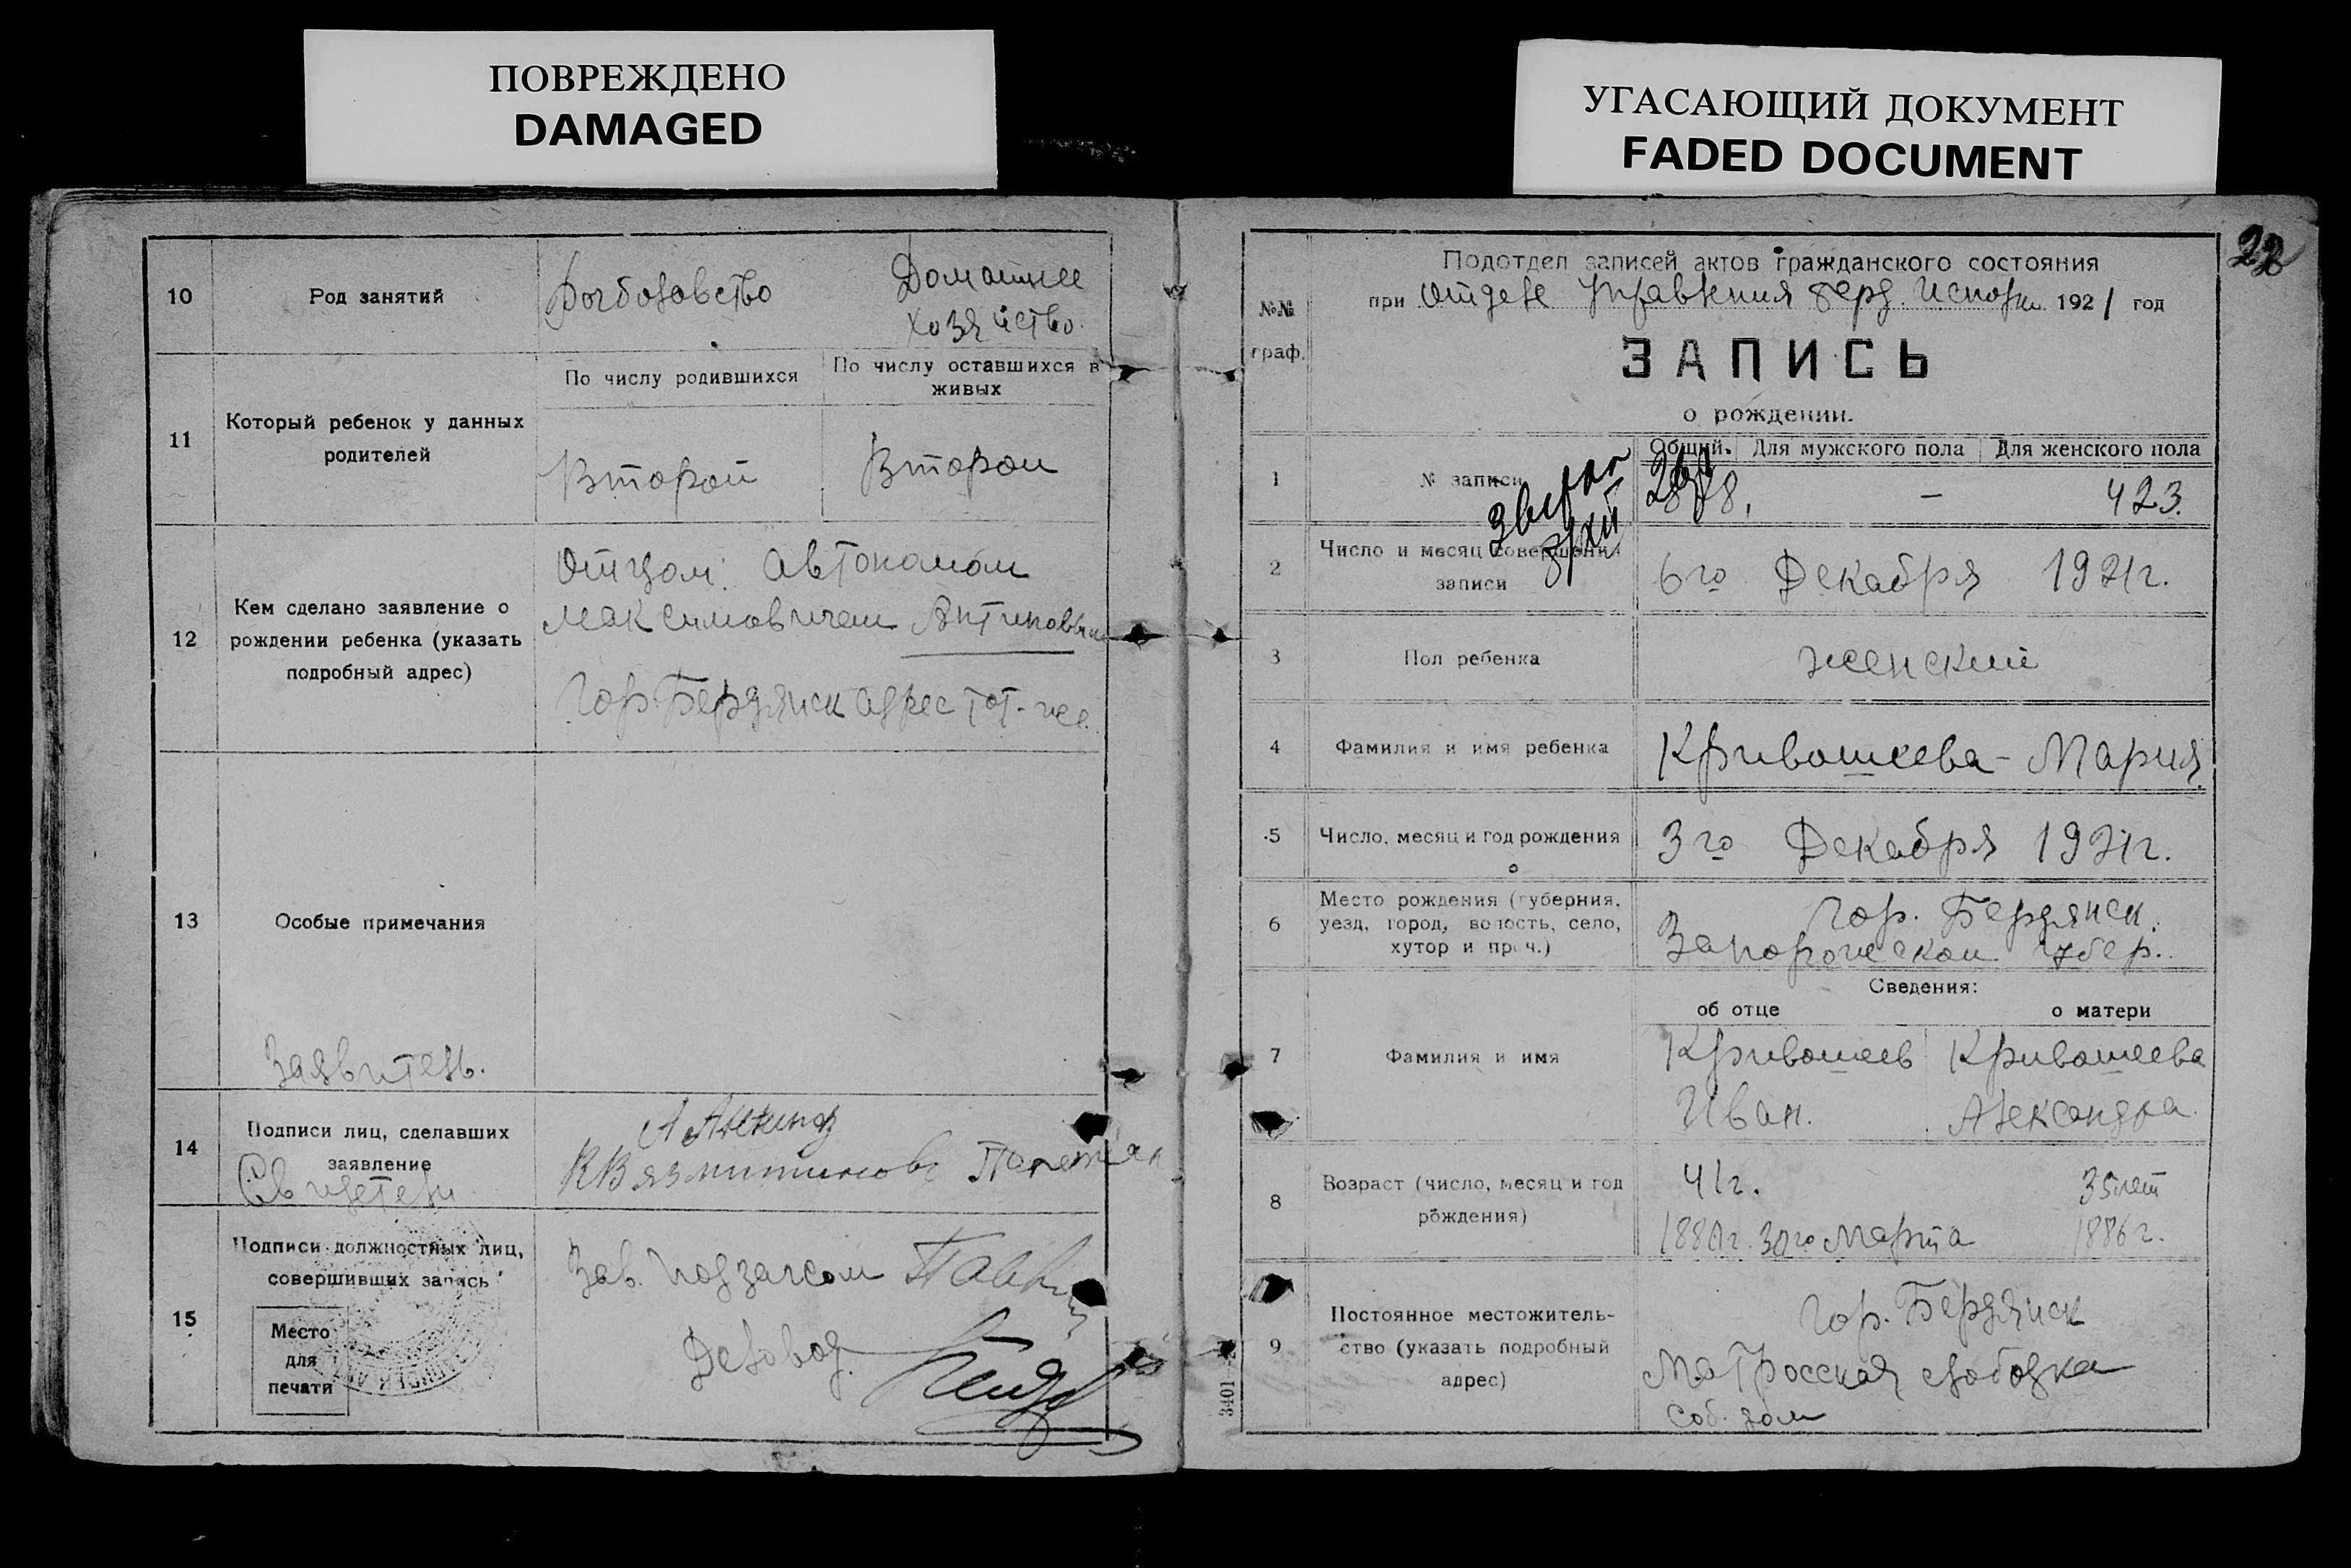 ПОВРЕЖДЕНО
DAMAGED
УГАСАЮЩИЙ ДОКУМЕНТ
FADED DOCUMENT
10
Род занятий
Домашнее
хозяйство.
11
Который ребенок у данных
родителей
По числу родившихся
По числу оставшихся в
живых
Второй
Второй
12
Кем сделано заявление о
рождении ребенка (указать
подробный адрес)
Отцом: Автономом
Максимовичем
Гор. Бердянск адрес тот-же.
13
Особые примечания
Заявитель.
14
Подписи лиц, сделавших
заявление
Свидетели
15
Подписи должностных лиц,
совершивших запись
Место
для
печати
Зав. подзагсом
Деловод.
22
№№
граф.
Подотдел записей актов гражданского состояния
при Отделе Управления Берд. Исполк. 1921 год
ЗАПИСЬ
о рождении.
1
№ записи
Общий.
Для мужского пола
Для женского пола
—
423.
2
Число и месяц совершения
записи
6го Декабря 1921г.
3
Пол ребенка
женский
4
Фамилия и имя ребенка
Кривошеева - Мария
5
Число, месяц и год рождения
3го Декабря 1921г.
6
Место рождения (губерния,
уезд, город, волость, село,
хутор и проч.)
Гор. Бердянск.
Запорожской губер.
Сведения:
об отце
о матери
7
Фамилия и имя
Кривошеев
Кривошеева
Иван.
Александра.
8
Возраст (число, месяц и год
рождения)
41г.
35 лет
Марта
1886г.
9
Постоянное местожитель-
ство (указать подробный
адрес)
Гор. Бердянск
Матросская слободка
соб. дом
3401